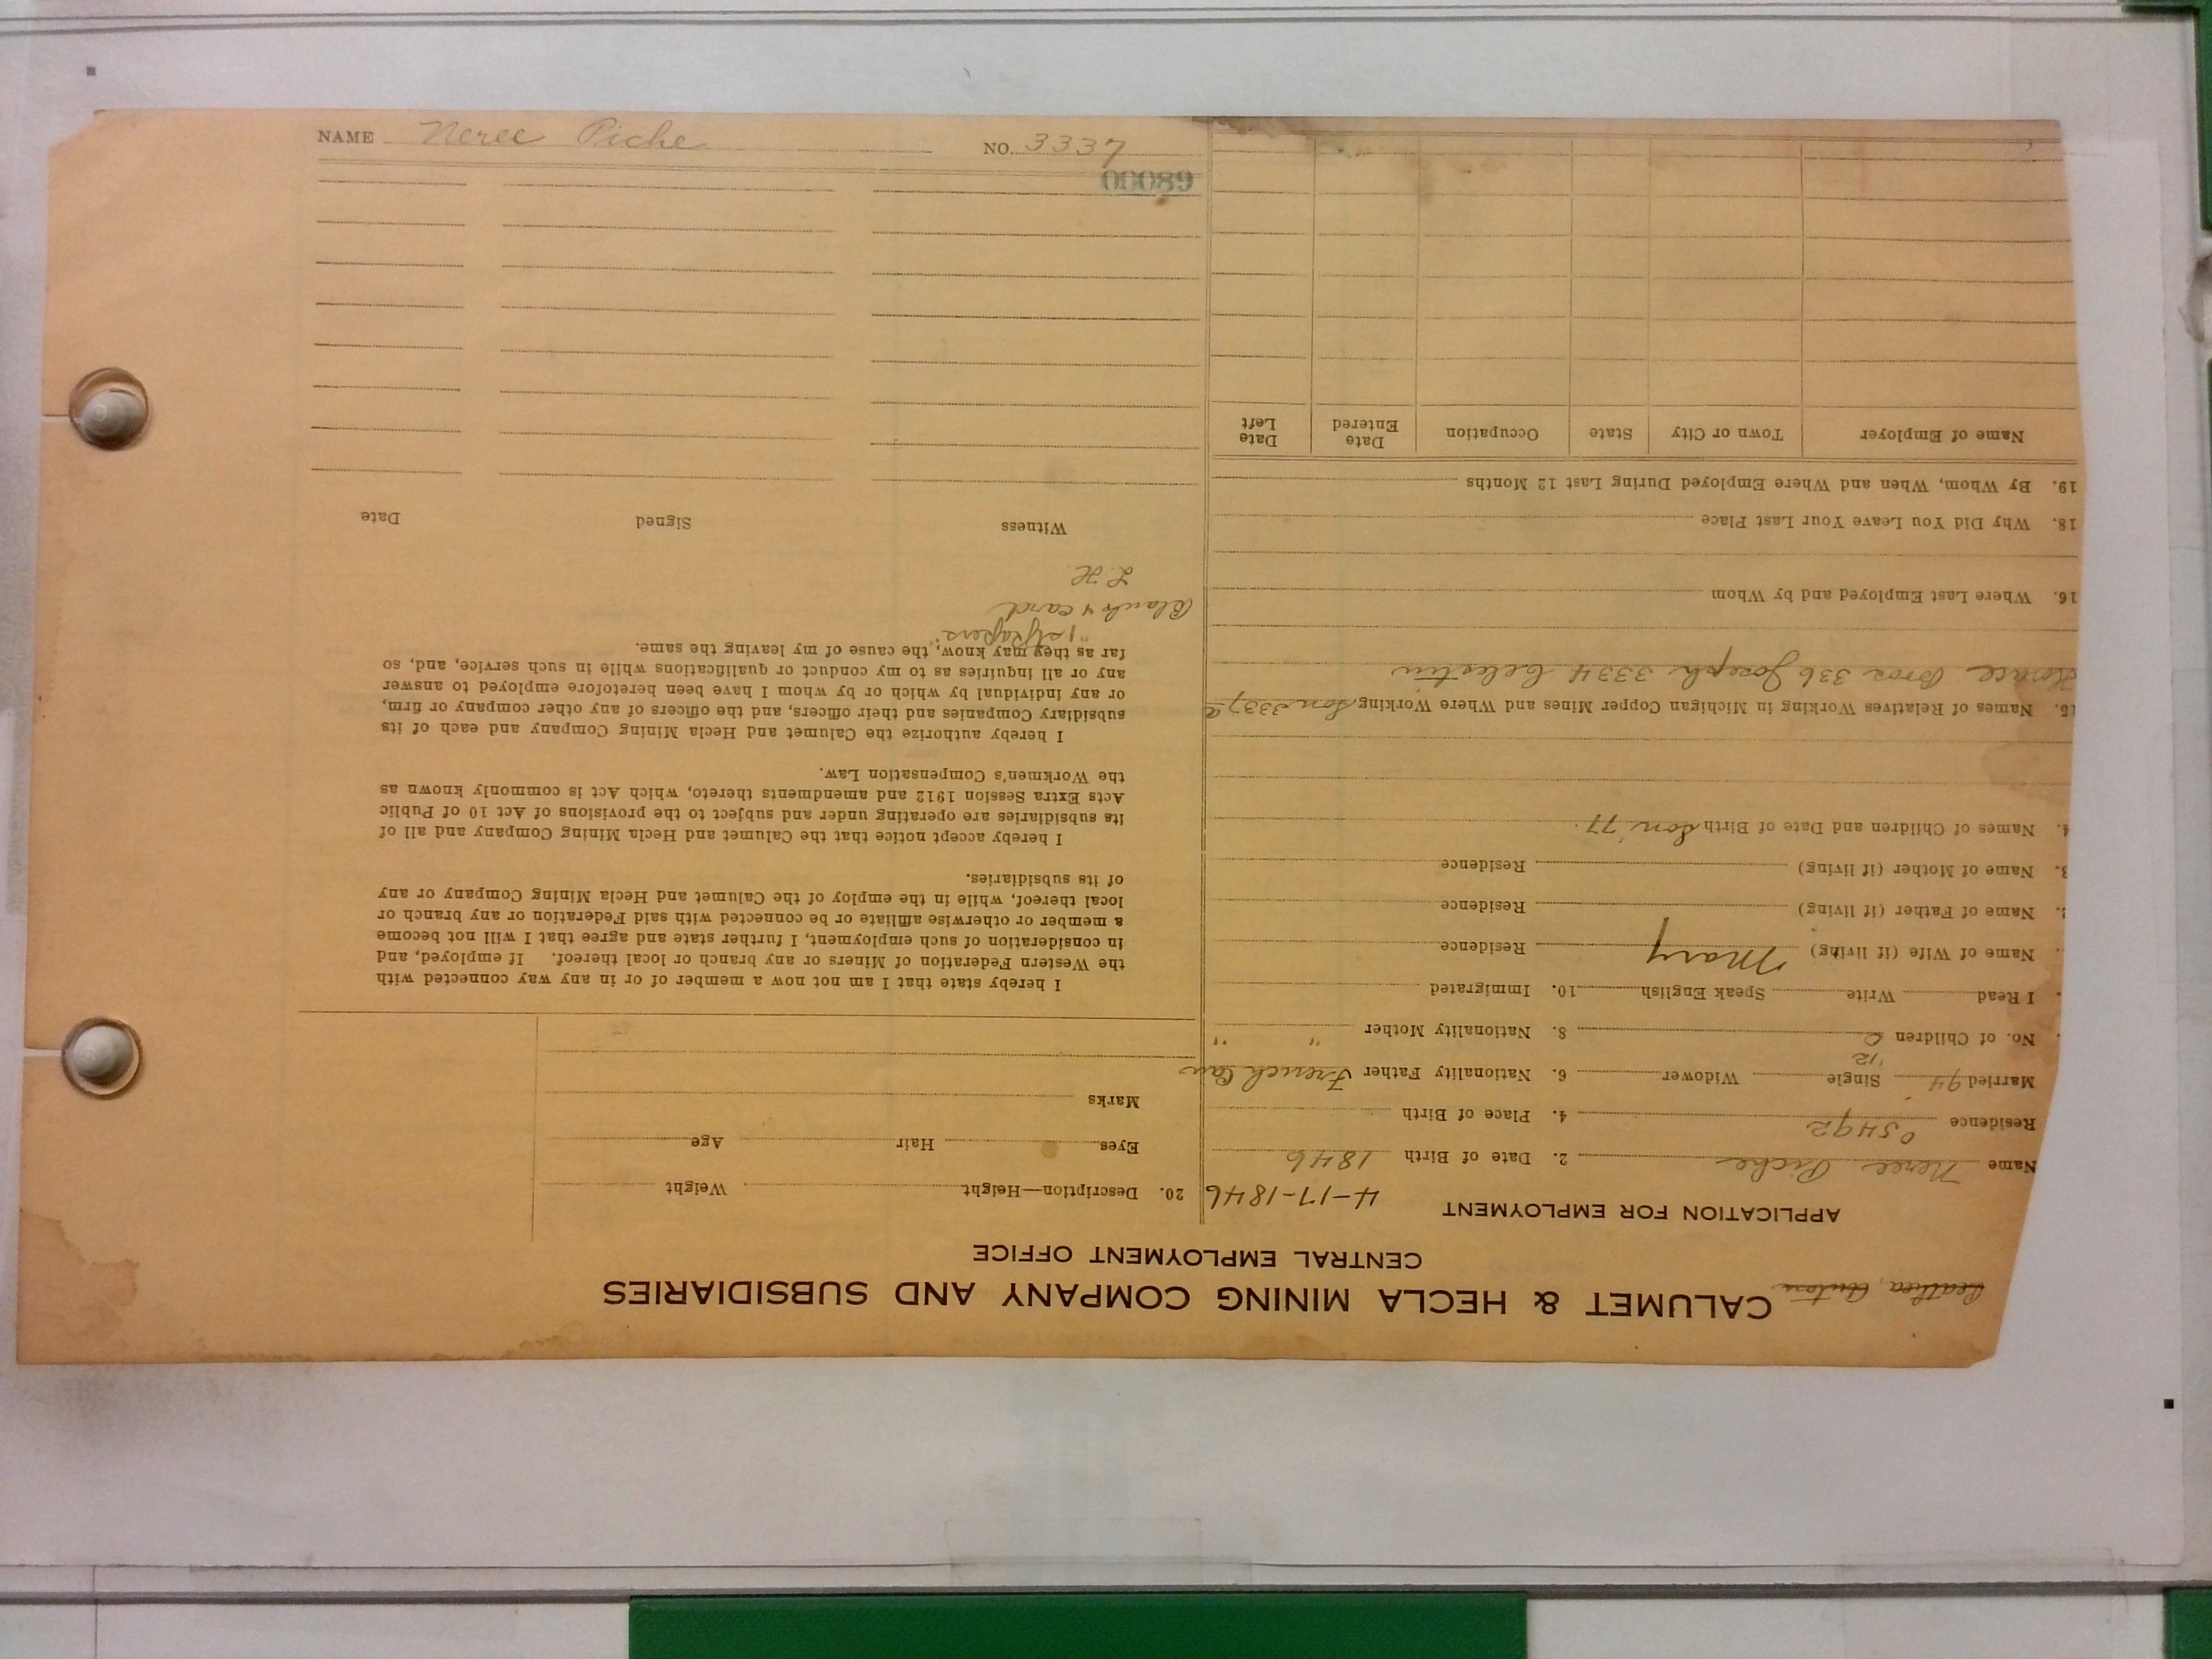 NAME Neree Piche NO. 3337
00089
CALUMET & HECLA MINING COMPANY AND SUBSIDIARIES
CENTRAL EMPLOYMENT OFFICE
APPLICATION FOR EMPLOYMENT
4-17-1846
Name Neree Piche 2. Date of Birth 1846
Residence 05492 4. Place of Birth
Married 94 Single '12 Widower 6. Nationality Father French Can
No. of Children 2 8. Nationality Mother " "
I Read Write Speak English 10. Immigrated
Name of Wife (if living) Mary Residence
Name of Father (if living) Residence
3. Name of Mother (if living) Residence
4. Names of Children and Date of Birth Son '77.
15. Names of Relatives Working in Michigan Copper Mines and Where Working Son 3337
Bros 336 Joseph 3334 Celestin
16. Where Last Employed and by Whom
18. Why Did You Leave Your Last Place
19. By Whom, When and Where Employed During Last 12 Months
Name of Employer Town or City State Occupation Date Entered Date Left
20. Description—Height Weight
Eyes Hair Age
Marks
I hereby state that I am not now a member of or in any way connected with
the Western Federation of Miners or any branch or local thereof. If employed, and
in consideration of such employment, I further state and agree that I will not become
a member or otherwise affiliate or be connected with said Federation or any branch or
local thereof, while in the employ of the Calumet and Hecla Mining Company or any
of its subsidiaries.
I hereby accept notice that the Calumet and Hecla Mining Company and all of
its subsidiaries are operating under and subject to the provisions of Act 10 of Public
Acts Extra Session 1912 and amendments thereto, which Act is commonly known as
the Workmen's Compensation Law.
I hereby authorize the Calumet and Hecla Mining Company and each of its
subsidiary Companies and their officers, and the officers of any other company or firm,
or any individual by which or by whom I have been heretofore employed to answer
any or all inquiries as to my conduct or qualifications while in such service, and, so
far as they may know, the cause of my leaving the same.
"1st Papers"
Blank & card
L.H.
Witness Signed Date